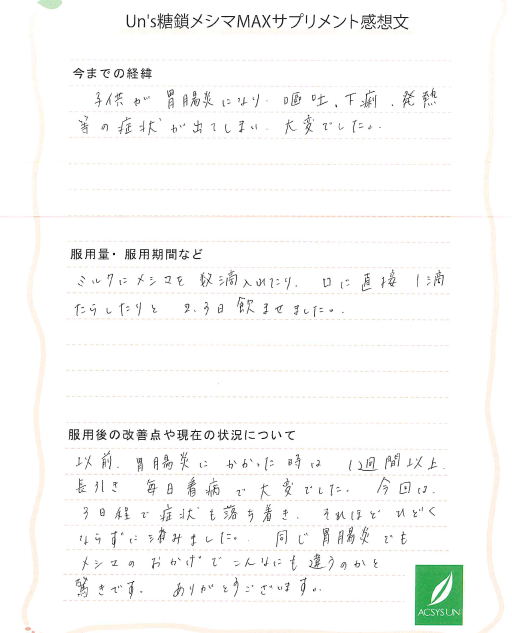 Un's糖鎖メシマMAXサプリメント感想文
今までの経緯
子供が胃腸炎になり、嘔吐、下痢、発熱
等の症状が出てしまい、大変でした。
服用量・服用期間など
ミルクにメシマを数滴入れたり、口に直接1滴
たらしたりと2、3日飲ませました。
服用後の改善点や現在の状況について
以前、胃腸炎にかかった時は1週間以上
長引き毎日看病で大変でした。今回は、
3日程で症状も落ち着き、それほどひどく
ならずに済みました。同じ胃腸炎でも
メシマのおかげでこんなにも違うのかと
驚きです。ありがとうございます。
ACSYSUN